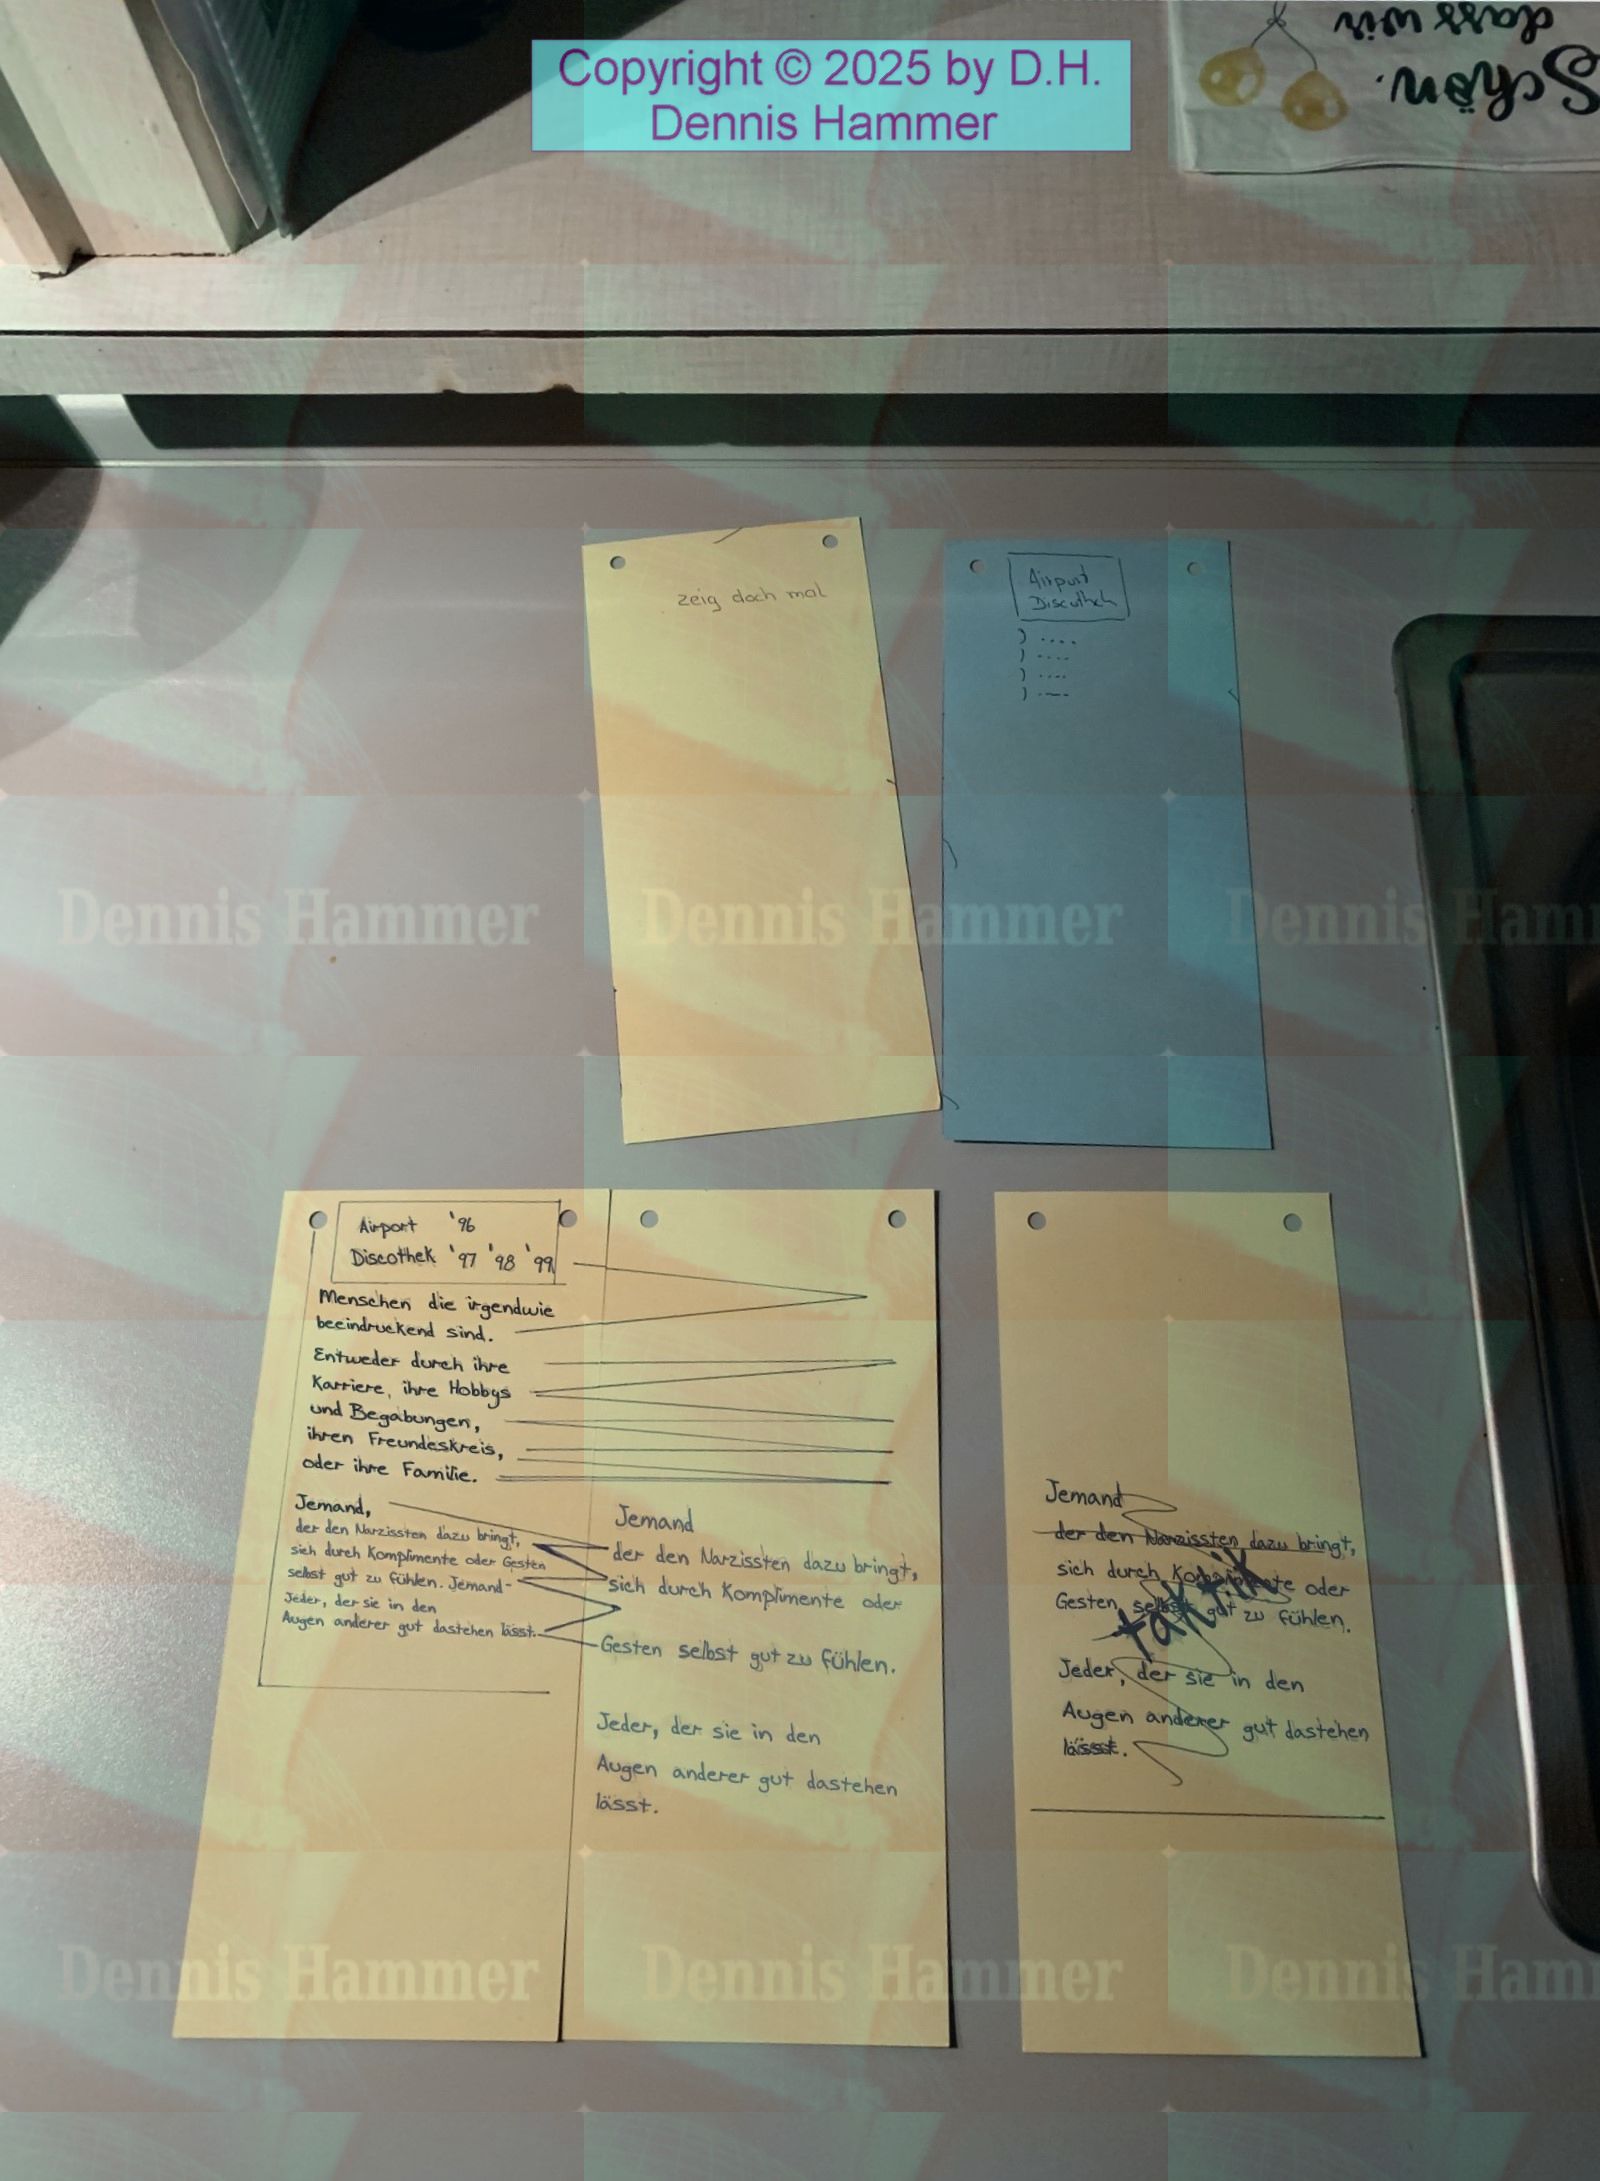 Copyright © 2025 by D.H.
Dennis Hammer
Schön.
dass wir
zeig doch mal
Airport
Discothek
) ....
) ....
) ....
) ....
Dennis Hammer Dennis Hammer Dennis Hamm
Airport '96
Discothek '97 '98 '99
Menschen die irgendwie
beeindruckend sind.
Entweder durch ihre
Karriere, ihre Hobbys
und Begabungen,
ihren Freundeskreis,
oder ihre Familie.
Jemand,
der den Narzissten dazu bringt,
sich durch Komplimente oder Gesten
selbst gut zu fühlen. Jemand-
Jeder, der sie in den
Augen anderer gut dastehen lässt.
Jemand
der den Narzissten dazu bringt,
sich durch Komplimente oder
Gesten selbst gut zu fühlen.
Jeder, der sie in den
Augen anderer gut dastehen
lässt.
Jemand
der den Narzissten dazu bringt,
sich durch Komplimente oder
Gesten selbst gut zu fühlen.
taktik
Jeder, der sie in den
Augen anderer gut dastehen
lässt.
Dennis Hammer Dennis Hammer Dennis Hamm